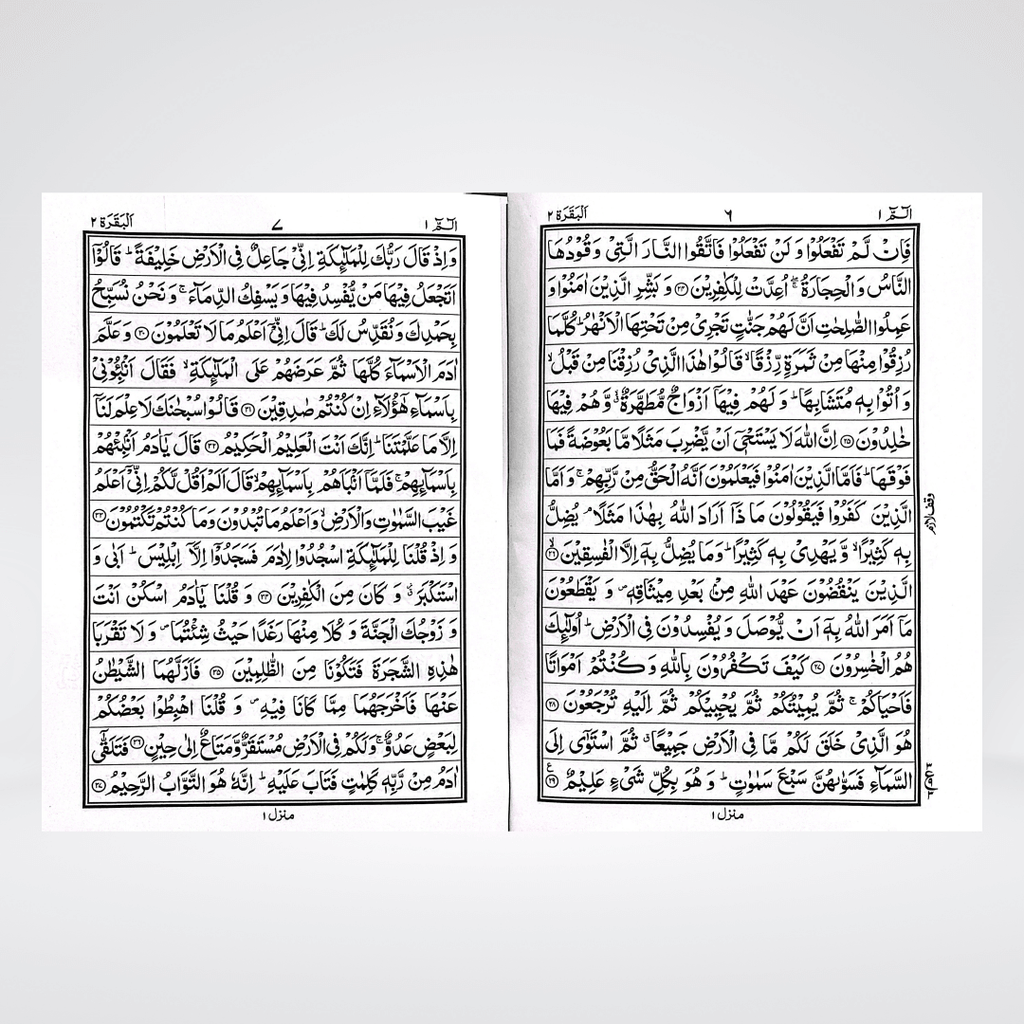 الٓمّٓ ١
٦
اَلْبَقَرَة ٢
فَاِنْ لَّمْ تَفْعَلُوْا وَ لَنْ تَفْعَلُوْا فَاتَّقُوا النَّارَ الَّتِیْ وَ قُوْدُهَا
النَّاسُ وَ الْحِجَارَةُ ۖۚ اُعِدَّتْ لِلْكٰفِرِیْنَ ﴿۲۴﴾ وَ بَشِّرِ الَّذِیْنَ اٰمَنُوْا وَ
عَمِلُوا الصّٰلِحٰتِ اَنَّ لَهُمْ جَنّٰتٍ تَجْرِیْ مِنْ تَحْتِهَا الْاَنْهٰرُ ؕ كُلَّمَا
رُزِقُوْا مِنْهَا مِنْ ثَمَرَةٍ رِّزْقًا ۙ قَالُوْا هٰذَا الَّذِیْ رُزِقْنَا مِنْ قَبْلُ ۙ
وَ اُتُوْا بِهٖ مُتَشَابِهًا ؕ وَ لَهُمْ فِیْهَاۤ اَزْوَاجٌ مُّطَهَّرَةٌ ۙۗ وَّ هُمْ فِیْهَا
خٰلِدُوْنَ ﴿۲۵﴾ اِنَّ اللّٰهَ لَا یَسْتَحْیٖۤ اَنْ یَّضْرِبَ مَثَلًا مَّا بَعُوْضَةً فَمَا
فَوْقَهَا ؕ فَاَمَّا الَّذِیْنَ اٰمَنُوْا فَیَعْلَمُوْنَ اَنَّهُ الْحَقُّ مِنْ رَّبِّهِمْ ۚ وَ اَمَّا
الَّذِیْنَ كَفَرُوْا فَیَقُوْلُوْنَ مَا ذَاۤ اَرَادَ اللّٰهُ بِهٰذَا مَثَلًا ۘ یُضِلُّ
وقف لازم
بِهٖ كَثِیْرًا ۙ وَّ یَهْدِیْ بِهٖ كَثِیْرًا ؕ وَ مَا یُضِلُّ بِهٖۤ اِلَّا الْفٰسِقِیْنَ ﴿ۙ۲۶﴾
الَّذِیْنَ یَنْقُضُوْنَ عَهْدَ اللّٰهِ مِنْۢ بَعْدِ مِیْثَاقِهٖ ۪ وَ یَقْطَعُوْنَ
مَاۤ اَمَرَ اللّٰهُ بِهٖۤ اَنْ یُّوْصَلَ وَ یُفْسِدُوْنَ فِی الْاَرْضِ ؕ اُولٰٓىِٕكَ
هُمُ الْخٰسِرُوْنَ ﴿۲۷﴾ كَیْفَ تَكْفُرُوْنَ بِاللّٰهِ وَ كُنْتُمْ اَمْوَاتًا
فَاَحْیَاكُمْ ۚ ثُمَّ یُمِیْتُكُمْ ثُمَّ یُحْیِیْكُمْ ثُمَّ اِلَیْهِ تُرْجَعُوْنَ ﴿۲۸﴾
هُوَ الَّذِیْ خَلَقَ لَكُمْ مَّا فِی الْاَرْضِ جَمِیْعًا ۗ ثُمَّ اسْتَوٰۤی اِلَی
السَّمَآءِ فَسَوّٰىهُنَّ سَبْعَ سَمٰوٰتٍ ؕ وَ هُوَ بِكُلِّ شَیْءٍ عَلِیْمٌ ﴿۲۹﴾ ع
منزل ١
الٓمّٓ ١
٧
اَلْبَقَرَة ٢
وَ اِذْ قَالَ رَبُّكَ لِلْمَلٰٓىِٕكَةِ اِنِّیْ جَاعِلٌ فِی الْاَرْضِ خَلِیْفَةً ؕ قَالُوْۤا
اَتَجْعَلُ فِیْهَا مَنْ یُّفْسِدُ فِیْهَا وَ یَسْفِكُ الدِّمَآءَ ۚ وَ نَحْنُ نُسَبِّحُ
بِحَمْدِكَ وَ نُقَدِّسُ لَكَ ؕ قَالَ اِنِّیْۤ اَعْلَمُ مَا لَا تَعْلَمُوْنَ ﴿۳۰﴾ وَ عَلَّمَ
اٰدَمَ الْاَسْمَآءَ كُلَّهَا ثُمَّ عَرَضَهُمْ عَلَی الْمَلٰٓىِٕكَةِ ۙ فَقَالَ اَنْۢبِـُٔوْنِیْ
بِاَسْمَآءِ هٰۤؤُلَآءِ اِنْ كُنْتُمْ صٰدِقِیْنَ ﴿۳۱﴾ قَالُوْا سُبْحٰنَكَ لَا عِلْمَ لَنَاۤ
اِلَّا مَا عَلَّمْتَنَا ؕ اِنَّكَ اَنْتَ الْعَلِیْمُ الْحَكِیْمُ ﴿۳۲﴾ قَالَ یٰۤاٰدَمُ اَنْۢبِئْهُمْ
بِاَسْمَآىِٕهِمْ ۚ فَلَمَّاۤ اَنْۢبَاَهُمْ بِاَسْمَآىِٕهِمْ ۙ قَالَ اَلَمْ اَقُلْ لَّكُمْ اِنِّیْۤ اَعْلَمُ
غَیْبَ السَّمٰوٰتِ وَ الْاَرْضِ ۙ وَ اَعْلَمُ مَا تُبْدُوْنَ وَ مَا كُنْتُمْ تَكْتُمُوْنَ ﴿۳۳﴾
وَ اِذْ قُلْنَا لِلْمَلٰٓىِٕكَةِ اسْجُدُوْا لِاٰدَمَ فَسَجَدُوْۤا اِلَّاۤ اِبْلِیْسَ ؕ اَبٰی وَ
اسْتَكْبَرَ ۗ وَ كَانَ مِنَ الْكٰفِرِیْنَ ﴿۳۴﴾ وَ قُلْنَا یٰۤاٰدَمُ اسْكُنْ اَنْتَ
وَ زَوْجُكَ الْجَنَّةَ وَ كُلَا مِنْهَا رَغَدًا حَیْثُ شِئْتُمَا ۪ وَ لَا تَقْرَبَا
هٰذِهِ الشَّجَرَةَ فَتَكُوْنَا مِنَ الظّٰلِمِیْنَ ﴿۳۵﴾ فَاَزَلَّهُمَا الشَّیْطٰنُ
عَنْهَا فَاَخْرَجَهُمَا مِمَّا كَانَا فِیْهِ ۪ وَ قُلْنَا اهْبِطُوْا بَعْضُكُمْ
لِبَعْضٍ عَدُوٌّ ۚ وَ لَكُمْ فِی الْاَرْضِ مُسْتَقَرٌّ وَّ مَتَاعٌ اِلٰی حِیْنٍ ﴿۳۶﴾ فَتَلَقّٰۤی
اٰدَمُ مِنْ رَّبِّهٖ كَلِمٰتٍ فَتَابَ عَلَیْهِ ؕ اِنَّهٗ هُوَ التَّوَّابُ الرَّحِیْمُ ﴿۳۷﴾
منزل ١